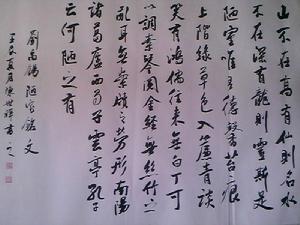 山不在高有仙則名水
不在深有龍則靈斯是
陋室唯吾德馨苔痕
上階綠草色入簾青談
笑有鴻儒往來無白丁可
以調素琴閱金經無絲竹之
亂耳無案牘之勞形南陽
諸葛廬西蜀子雲亭孔子
云何陋之有
劉禹錫陋室銘文
夏月陳世書之